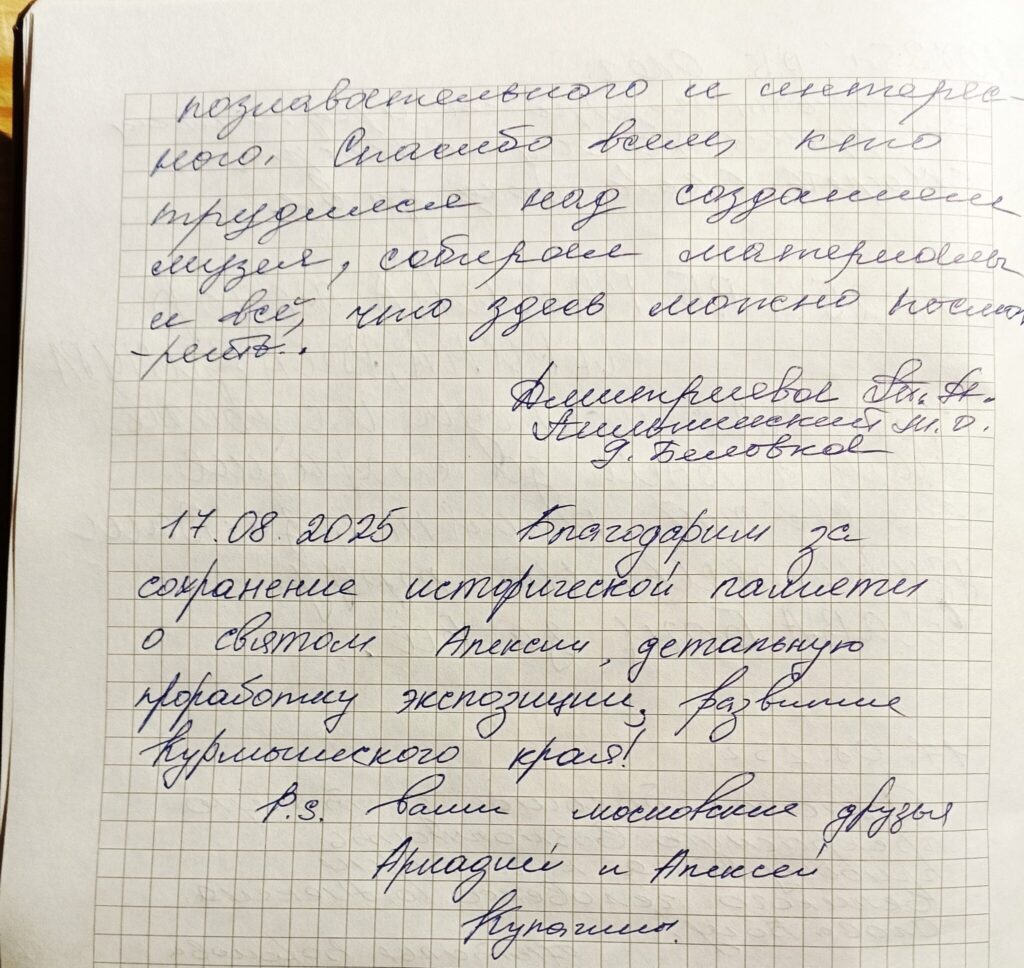 познавательного и интерес-
ного. Спасибо всем, кто
трудился над созданием
музея, собирал материалы
и всё, что здесь можно посмот
-реть.
Дмитриева
Пильнинский м.о.
д. Беловка
17.08.2025 Благодарим за
сохранение исторической памяти
о святом Алексии, детальную
проработку экспозиции, развитие
Курмышского края!
P.S. ваши московские друзья
Аркадий и Алексей